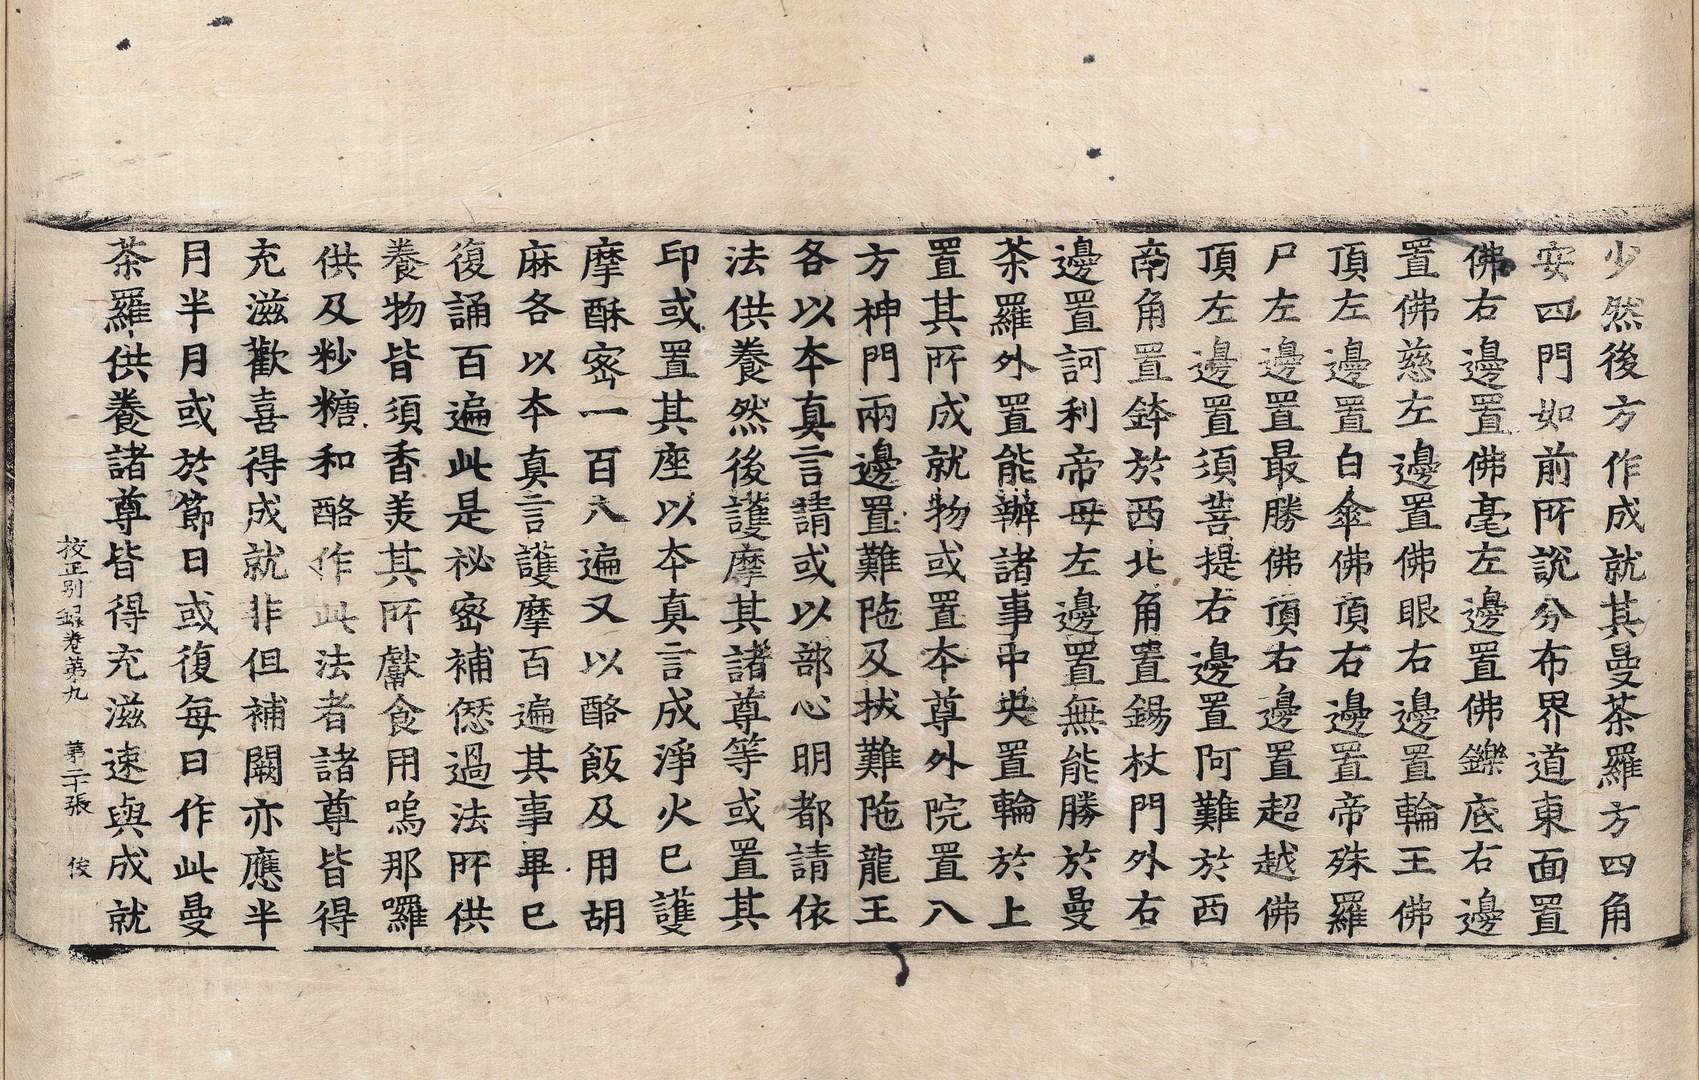 少然後方作成就其曼荼羅方四角
安四門如前所說分布界道東面置
佛右邊置佛毫左邊置佛鑠底右邊
置佛慈左邊置佛眼右邊置輪王佛
頂左邊置白傘佛頂右邊置帝殊羅
尸左邊置最勝佛頂右邊置超越佛
頂左邊置須菩提右邊置阿難於西
南角置鉢於西北角置錫杖門外右
邊置訶利帝母左邊置無能勝於曼
荼羅外置能辦諸事中央置輪於上
置其所成就物或置本尊外院置八
方神門兩邊置難陁及拔難陁龍王
各以本真言請或以部心明都請依
法供養然後護摩其諸尊等或置其
印或置其座以本真言成淨火已護
摩酥宻一百八遍又以酪飯及用胡
麻各以本真言護摩百遍其事畢已
復誦百遍此是祕宻補𠎝過法所供
養物皆須香美其所獻食用嗚那囉
供及粆糖和酪作此法者諸尊皆得
充滋歡喜得成就非但補闕亦應半
月半月或於節日或復每日作此曼
荼羅供養諸尊皆得充滋速與成就
校正別録卷第九 第二十張 俊